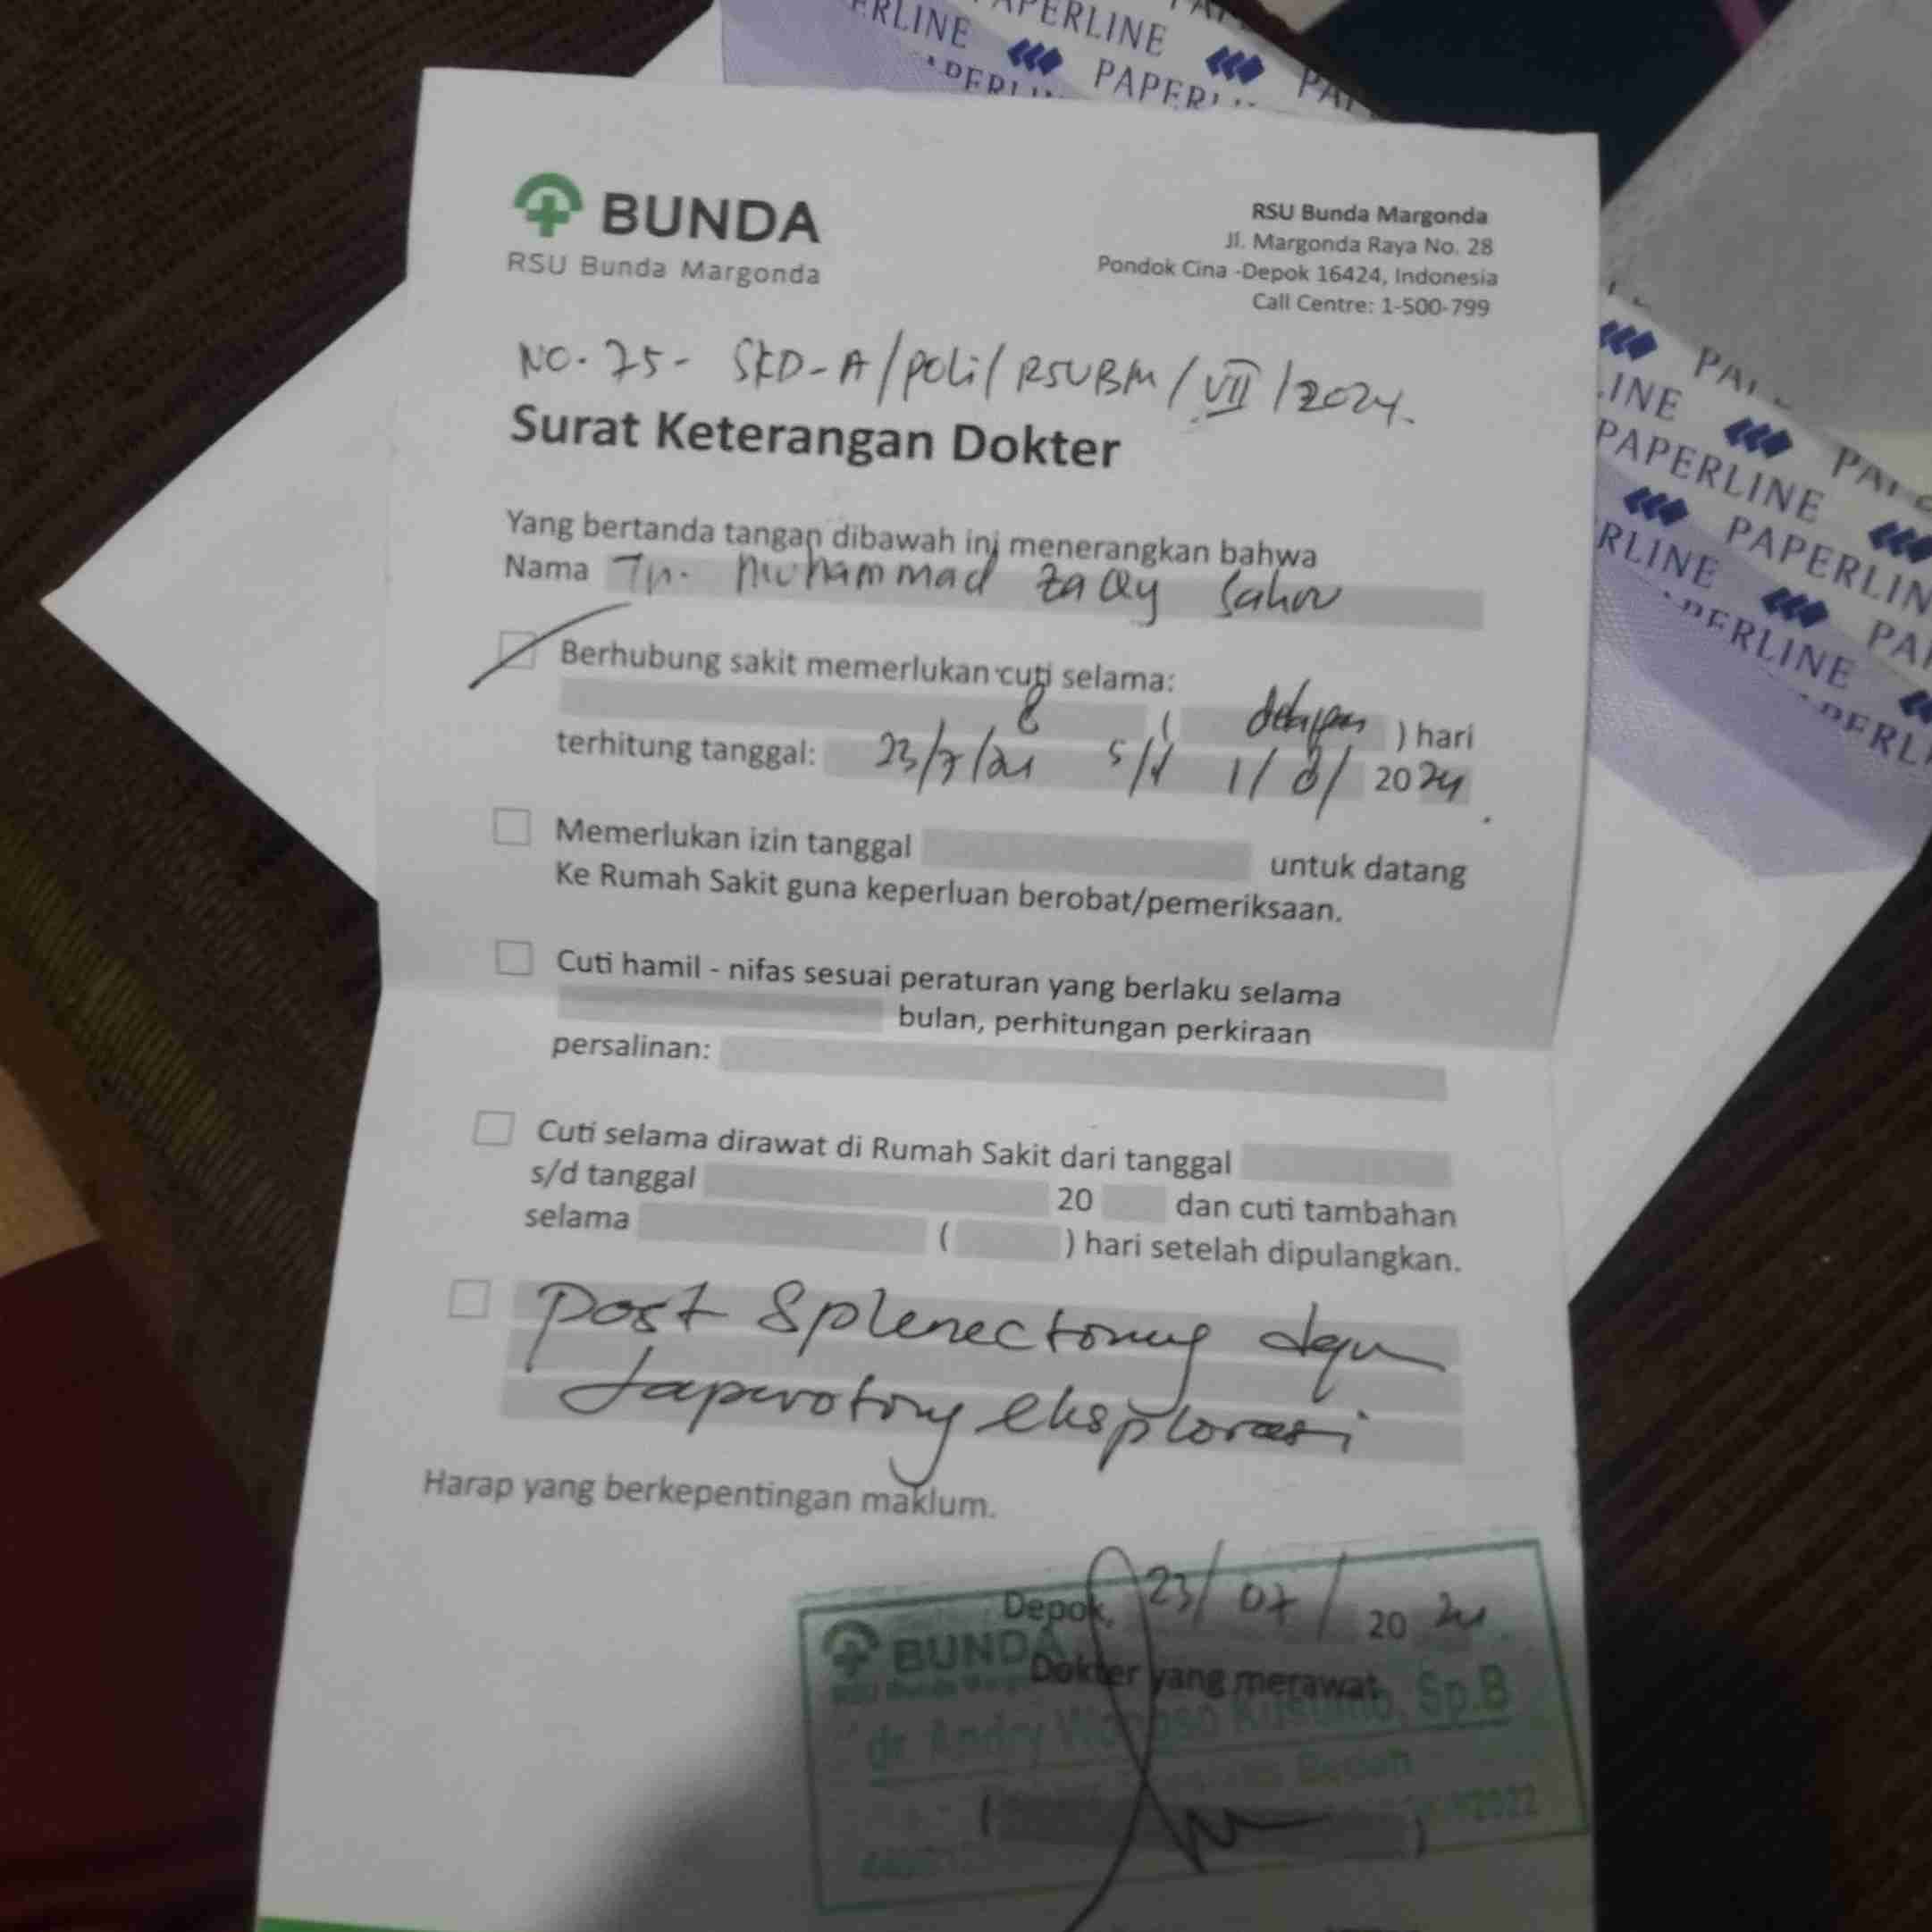 ERLINE PAPERLINE
PAPERLINE
BUNDA
RSU Bunda Margonda
RSU Bunda Margonda
Jl. Margonda Raya No. 28
Pondok Cina -Depok 16424, Indonesia
Call Centre: 1-500-799
NO. 75- SKD-A/poli/RSUBM/VII/2024.
Surat Keterangan Dokter
Yang bertanda tangan dibawah ini menerangkan bahwa
Nama Tn. Muhammad Zaqy
Berhubung sakit memerlukan cuti selama:
8 ( delapan ) hari
terhitung tanggal: 23/7/24 s/d 1/8/ 2024
Memerlukan izin tanggal untuk datang
Ke Rumah Sakit guna keperluan berobat/pemeriksaan.
Cuti hamil - nifas sesuai peraturan yang berlaku selama
bulan, perhitungan perkiraan
persalinan:
Cuti selama dirawat di Rumah Sakit dari tanggal
s/d tanggal 20 dan cuti tambahan
selama ( ) hari setelah dipulangkan.
Post Splenectomy dgn
Laparotomy eksplorasi
Harap yang berkepentingan maklum.
Depok, 23/07/2024
BUNDA
Dokter yang merawat
dr Andry Wongso Kusumo, Sp.B
Bedah
( )
PAPERLINE
PAPERLINE